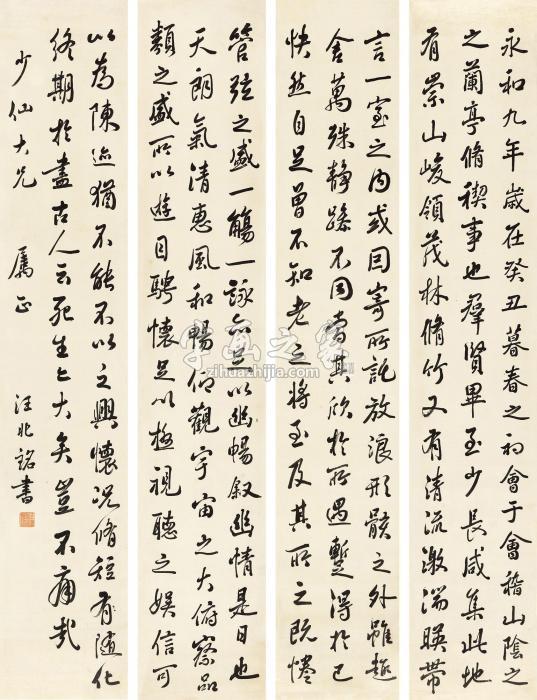 永和九年歲在癸丑暮春之初會于會稽山陰之
之蘭亭脩禊事也羣賢畢至少長咸集此地
有崇山峻領茂林脩竹又有清流激湍暎帶
言一室之內或因寄所託放浪形骸之外雖趣
舍萬殊靜躁不同當其欣於所遇蹔得於己
快然自足曾不知老之將至及其所之既惓
管弦之盛一觴一詠亦足以幽暢叙幽情是日也
天朗氣清惠風和暢仰觀宇宙之大俯察品
類之盛所以遊目騁懷足以極視聽之娛信可
以為陳迹猶不能不以之興懷況脩短有隨化
終期於盡古人云死生亦大矣豈不痛哉
少仙大兄 屬正 汪兆銘書
字画之家
zihuazhijia.com